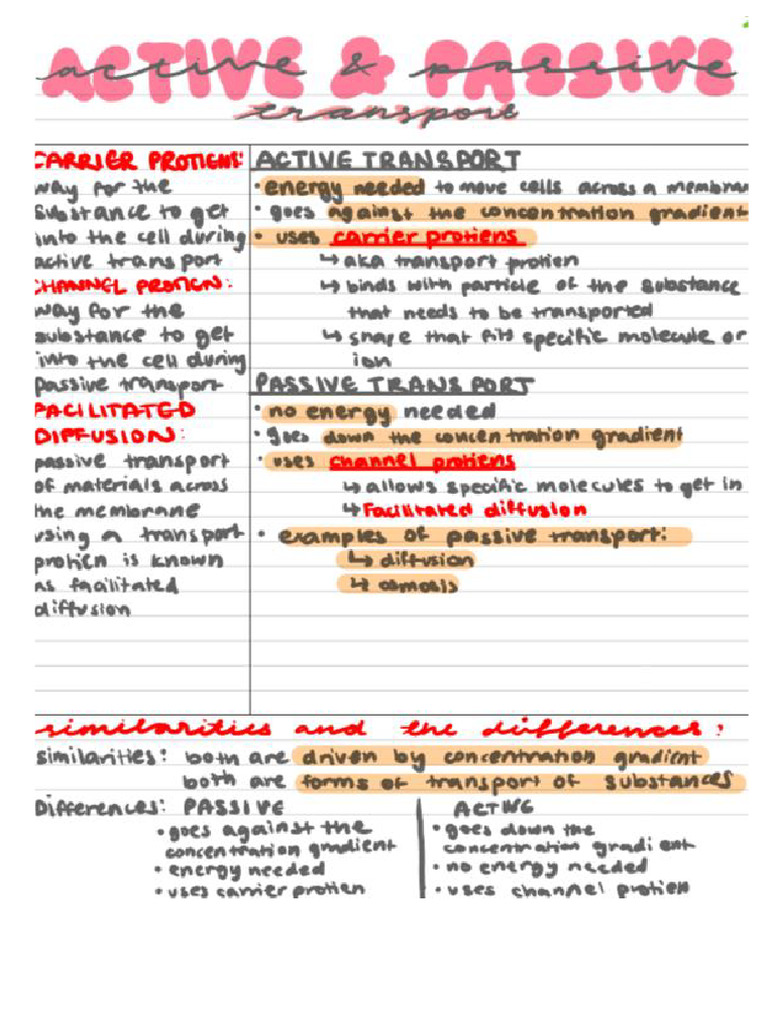 ACTIVE & PASSIVE
active & passive
transport
CARRIER PROTIENS:
way for the
substance to get
into the cell during
active transport
CHANNEL PROTIEN:
way for the
substance to get
into the cell during
passive transport
FACILITATED
DIFFUSION:
passive transport
of materials across
the membrane
using a transport
protien is known
as facilitated
diffusion
ACTIVE TRANSPORT
• energy needed to move cells across a membran
• goes against the concentration gradient
• uses carrier protiens
↳ aka transport protien
↳ binds with particle of the substance
that needs to be transported
↳ shape that fits specific molecule or
ion
PASSIVE TRANSPORT
• no energy needed
• goes down the concentration gradient
• uses channel protiens
↳ allows specific molecules to get in
↳ Facilitated diffusion
• examples of passive transport:
↳ diffusion
↳ osmosis
similarities and the differences:
similarities: both are driven by concentration gradient
both are forms of transport of substances
Differences: PASSIVE
• goes against the
concentration gradient
• energy needed
• uses carrier protien
ACTIVE
• goes down the
concentration gradient
• no energy needed
• uses channel protien